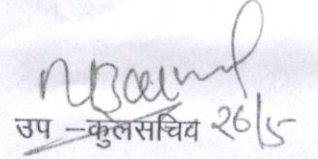 उप - कुलसचिव 26/5